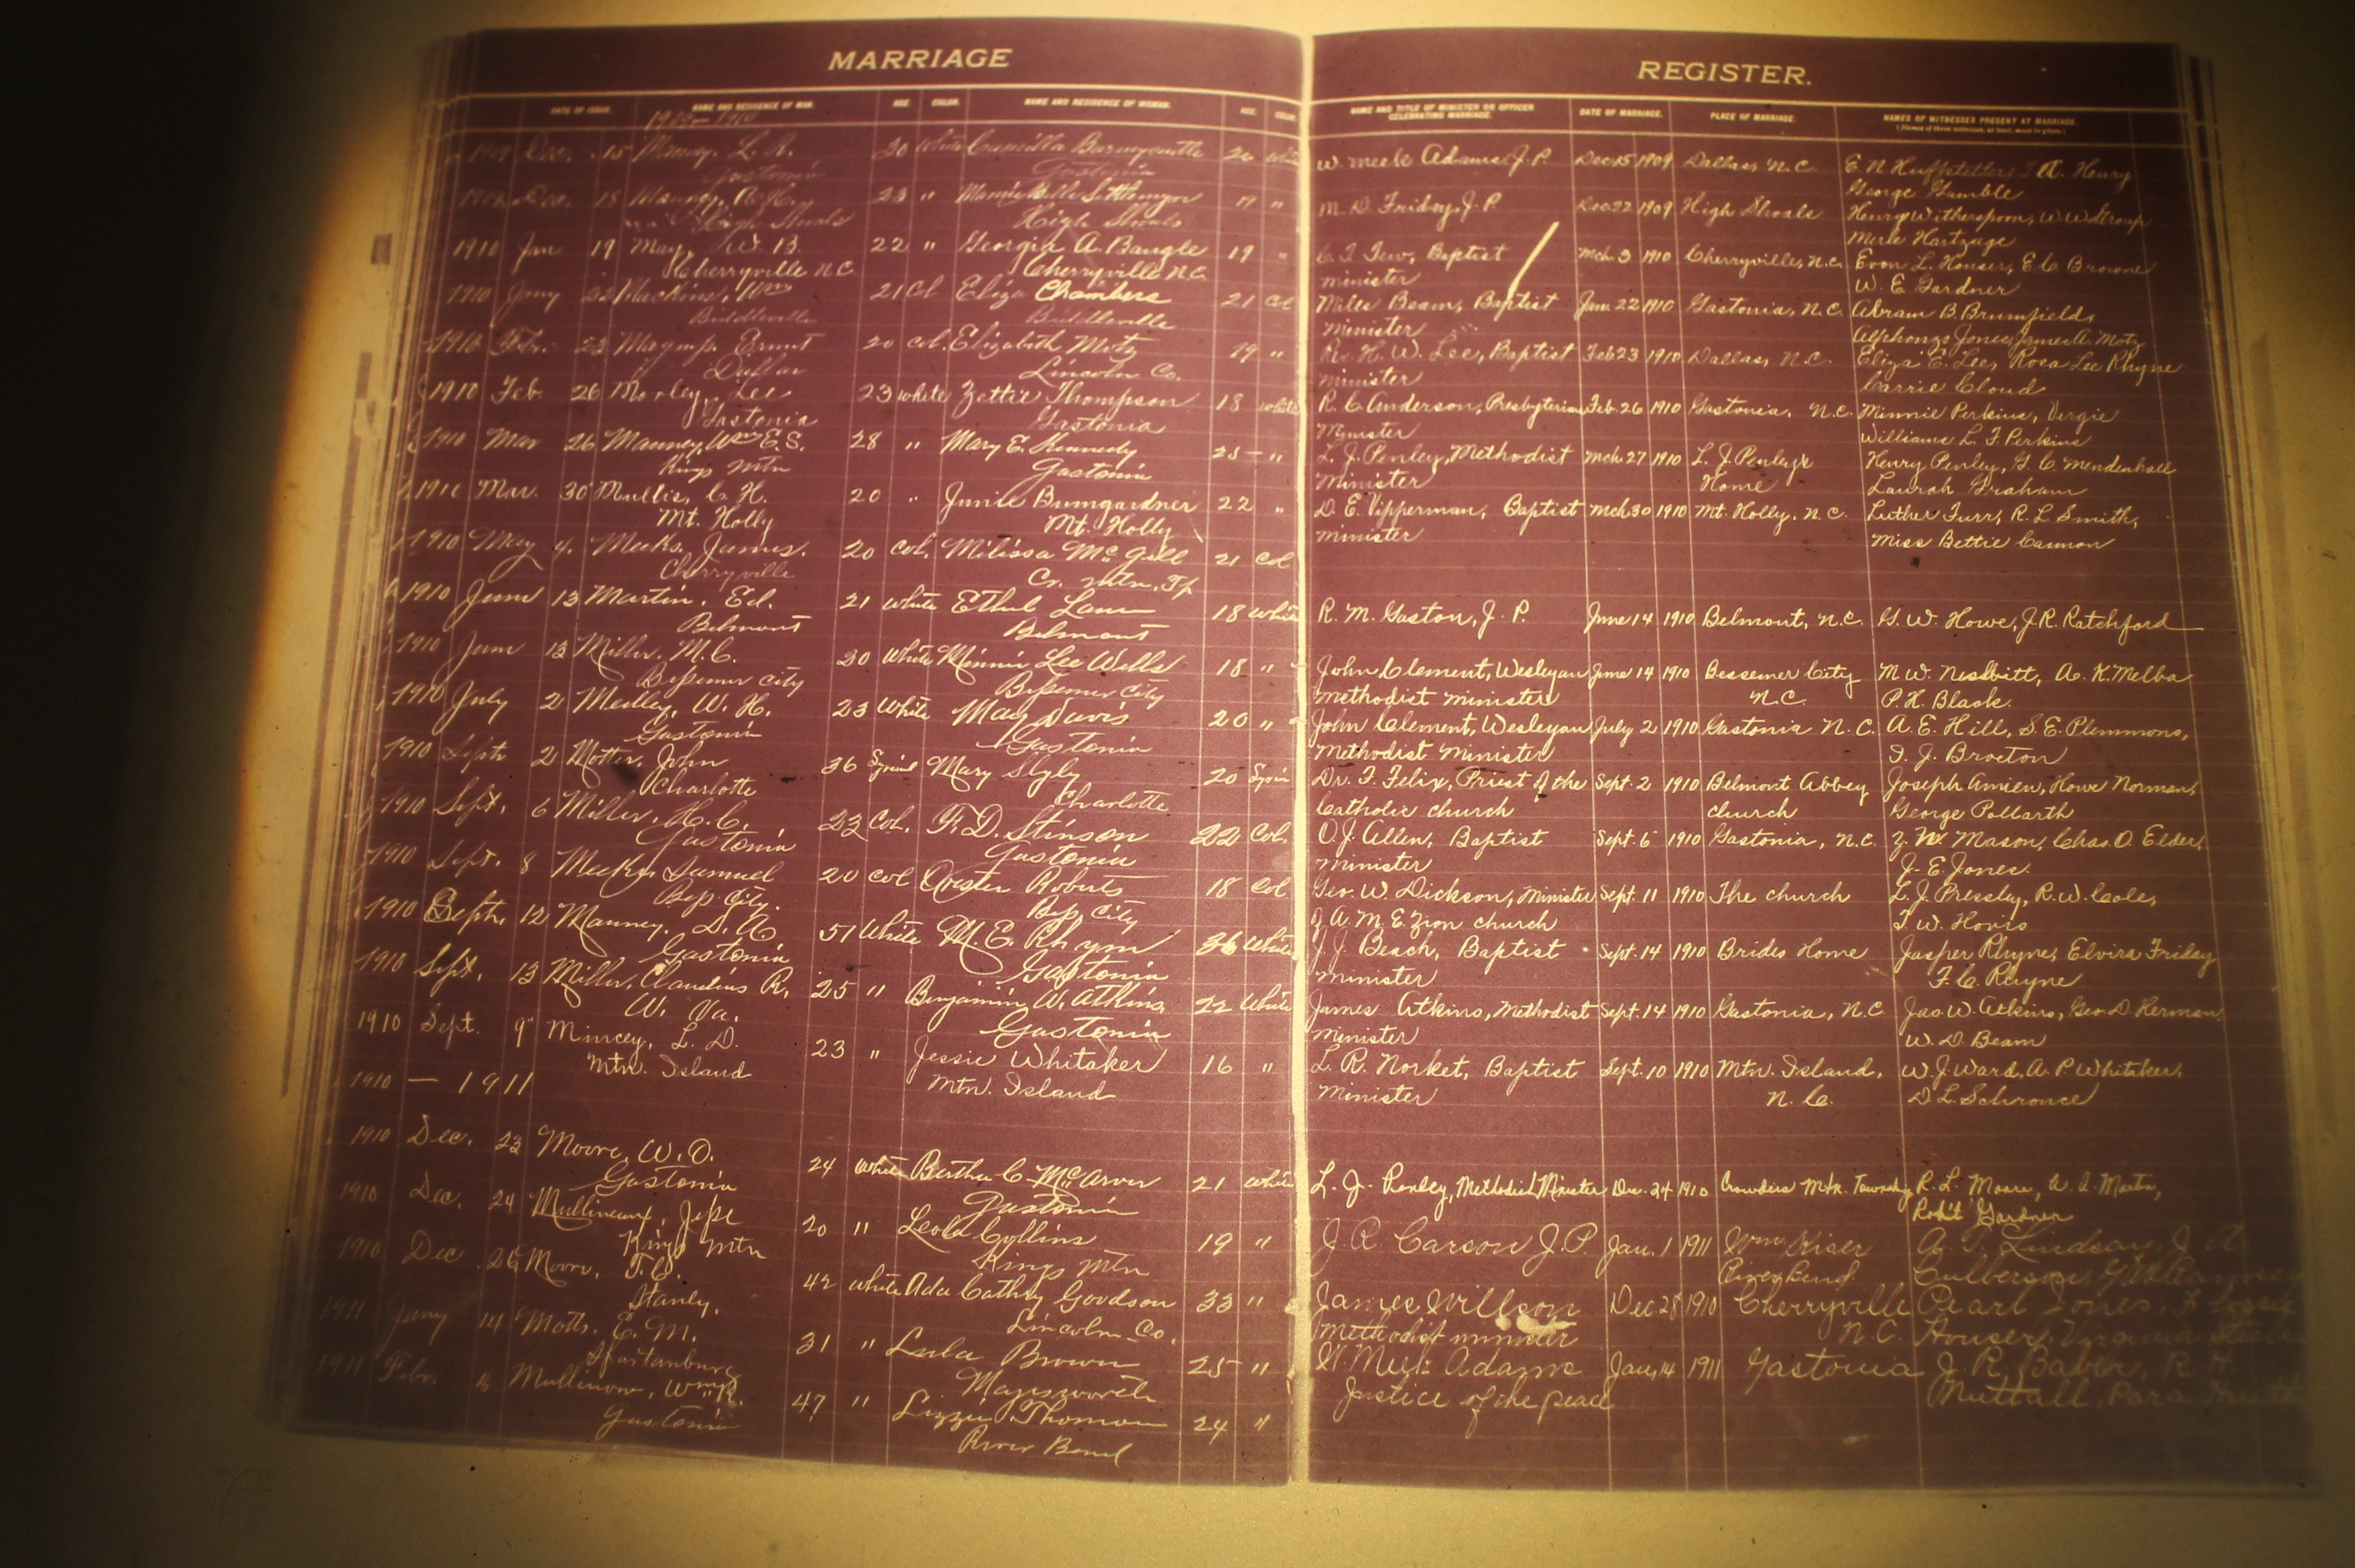 MARRIAGE REGISTER.
DATE OF ISSUE. NAME AND RESIDENCE OF MAN. AGE. COLOR. NAME AND RESIDENCE OF WOMAN. AGE. COLOR. NAME AND TITLE OF MINISTER OR OFFICER CELEBRATING MARRIAGE. DATE OF MARRIAGE. PLACE OF MARRIAGE. NAMES OF WITNESSES PRESENT AT MARRIAGE.
1909 Dec. 15 Mauney, L. R. 20 White Camilla 20 W. Meek Adams J.P. Dec 15 1909 Dallas, N.C. E. N. Huffstetler, Henry
Gastonia Gastonia George Gamble
Dec. 18 Mauney, 23 " 17 " M. D. Friday, J.P. Dec 22 1909 High Shoals Henry Witherspoon, W. W. Stroup
High Shoals High Shoals Merle Hartzage
1910 Jan 19 May, W B. 22 " Georgia A. Baugle 19 " Baptist Mch 3 1910 Cherryville, N.C. Evon L. Houser, E. C. Browne
Cherryville N C Cherryville N.C. minister W. E. Gardner
1910 Jany 22 Mackins, Wm 21 Col Eliza Chambers 21 Col Miles Beam, Baptist Jan. 22 1910 Gastonia, N.C. Abram B. Brumfield,
Biddleville Biddleville Minister Alphonzo Jones, James A. Motz
1910 Feb. 23 Ernest 20 Col. Elizabeth Motz 19 " Rev. H. W. Lee, Baptist Feb 23 1910 Dallas, N.C. Eliza E. Lee, Rosa Lee Rhyne
Dallas Lincoln Co. minister Carrie Cloud
1910 Feb 26 Morley, Lee 23 white Zettie Thompson 18 white R. C. Anderson, Presbyterian Feb. 26 1910 Gastonia, N.C. Minnie Perkins, Vergie
Gastonia Gastonia Minister Williams L. F. Perkins
1910 Mar 26 Mauney, Wm E. S. 28 " Mary E. Kennedy 25 " L. J. Penley, Methodist Mch 27 1910 L. J. Penleys Henry Penley, G. C. Mendenhall
Kings Mtn Gastonia Minister Home Laurah Graham
1910 Mar. 30 Mullis, C. H. 20 " Junie Bumgardner 22 " D. E. Vipperman, Baptist Mch 30 1910 Mt. Holly, N.C. Luther Furr, R. L. Smith,
Mt. Holly Mt. Holly minister Miss Bettie Cannon
1910 May 4. Meeks, James. 20 Col. Milissa McGill 21 Col
Cherryville Cr. Mtn. Tp
1910 June 13 Martin, Ed. 21 white Ethel Law 18 White R. M. Gaston, J. P. June 14 1910 Belmont, N.C. G. W. Howe, J. R. Ratchford
Belmont Belmont
1910 June 13 Miller, M. C. 20 White Minnie Lee Wells 18 " John Clement, Wesleyan June 14 1910 Bessemer City M. W. Nesbitt, A. K. Melba
Bessemer City Bessemer City Methodist minister N.C. P. H. Black.
1910 July 2 Medley, W. H. 23 White May Davis 20 " John Clement, Wesleyan July 2 1910 Gastonia N.C. A. E. Hill, S. E. Plemmons,
Gastonia Gastonia Methodist Minister I. J. Brocton
1910 Sept 2 Motter, John 36 Mary Slyly 20 Dr. F. Felix, Priest of the Sept. 2 1910 Belmont Abbey Joseph Amien, Howe Norman,
Charlotte Charlotte Catholic church church George Pollarth
1910 Sept. 6 Miller, H. C. 23 Col. F. D. Stinson 22 Col. O. J. Allen, Baptist Sept. 6 1910 Gastonia, N.C. Z. W. Mason, Chas. O. Elder,
Gastonia Gastonia Minister J. E. Jones.
1910 Sept. 8 Meeks, Samuel 20 Col Roberts 18 Col Geo. W. Dickson, Minister Sept. 11 1910 The church L. J. Pressley, R. W. Cole,
Bess City. Bess City of A. M. E. Zion church T. W. Hovis
1910 Sept. 12 Mauney, D. A. 51 White M. E. Rhyne 36 White J. J. Beach, Baptist Sept. 14 1910 Brides Home Jasper Rhyne, Elvira Friday
Gastonia Gastonia Minister F. C. Rhyne
1910 Sept. 13 Miller, Claudius R. 25 " Benjamin W. Atkins, 22 White James Atkins, Methodist Sept. 14 1910 Gastonia, N.C. Jas. W. Atkins, Geo. D. Herman
W. Va. Gastonia Minister W. D. Beam
1910 Sept. 9" Mincey, L. D. 23 " Jessie Whitaker 16 " L. R. Norket, Baptist Sept. 10 1910 Mtn. Island, W. J. Ward, A. P. Whitaker,
Mtn. Island Mtn. Island Minister N. C. D. L. Schronce
1910 — 1911
1910 Dec. 23 Moore, W. O. 24 White Bertha C. McArver 21 White L. J. Penley, Methodist Minister Dec. 24 1910 Crowders Mtn. Township R. L. Moore, W. A. Martin,
Gastonia Gastonia Rob't Gardner
1910 Dec. 24 Mullineaux, Jesse 20 " Leola Collins 19 " J. R. Carson J. P. Jan. 1 1911 Wm. Kiser A. T. Lindsay, J. A.
Kings Mtn Kings Mtn River Bend Culberson,
1910 Dec 26 Moore, T. C. 42 White Ada Cathey Goodson 33 " James Willson Dec 28 1910 Cherryville Pearl Jones, Flossie
Stanly, Lincoln Co. Methodist minister N. C. Houser, Virginia
1911 Jany 14 Motts, E. M. 31 " Lula Brown 25 " W. Meek Adams Jan. 14 1911 Gastonia J. R. Baber, R. H.
Spartanburg Maysworth Justice of the peace Nuttall,
1911 Febr. Mullinow, Wm. R. 47 " Lizzie Thomas 24 "
Gastonia River Bend